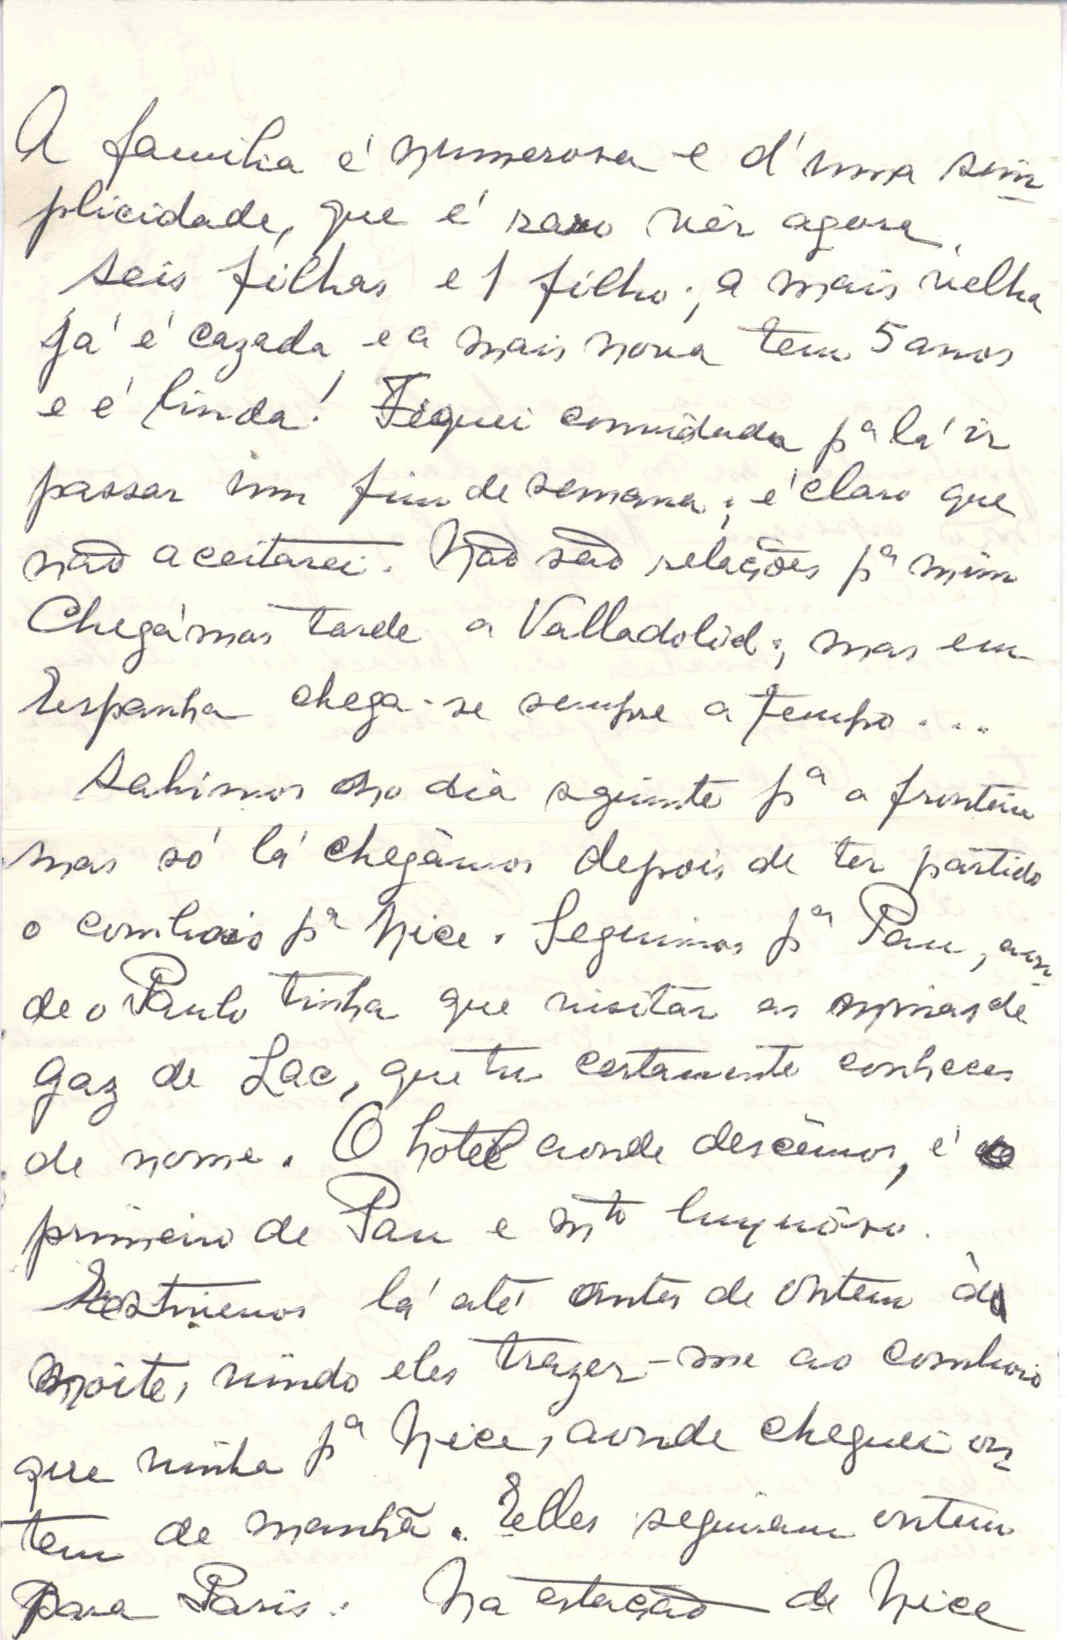 A familia é numerosa e d'uma sim
plicidade, que é raro vêr agora.
Seis filhas e 1 filho; a mais velha
já é cazada e a mais nova tem 5 anos
e é linda! Fiquei convidada pª lá ir
passar um fim de semana; é claro que
não aceitarei. Não são relações pª mim
Chegámos tarde a Valladolid; mas em
Espanha chega-se sempre a tempo...
Sahimos no dia seguinte pª a fronteira
mas só lá chegámos depois de ter partido
o comboio pª Nice. Seguimos pª Pau, aon
de o Paulo tinha que visitar as minas de
gaz de Lac, que tu certamente conheces
de nome. O hotel aonde descêmos, é o
primeiro de Pau e mto luxuôso.
Estivemos lá até antes de ontem à
noite, vindo eles trazer-me ao comboio
que vinha pª Nice, aonde cheguei on
tem de manhã. Elles seguiram ontem
para Paris. Na estação de Nice